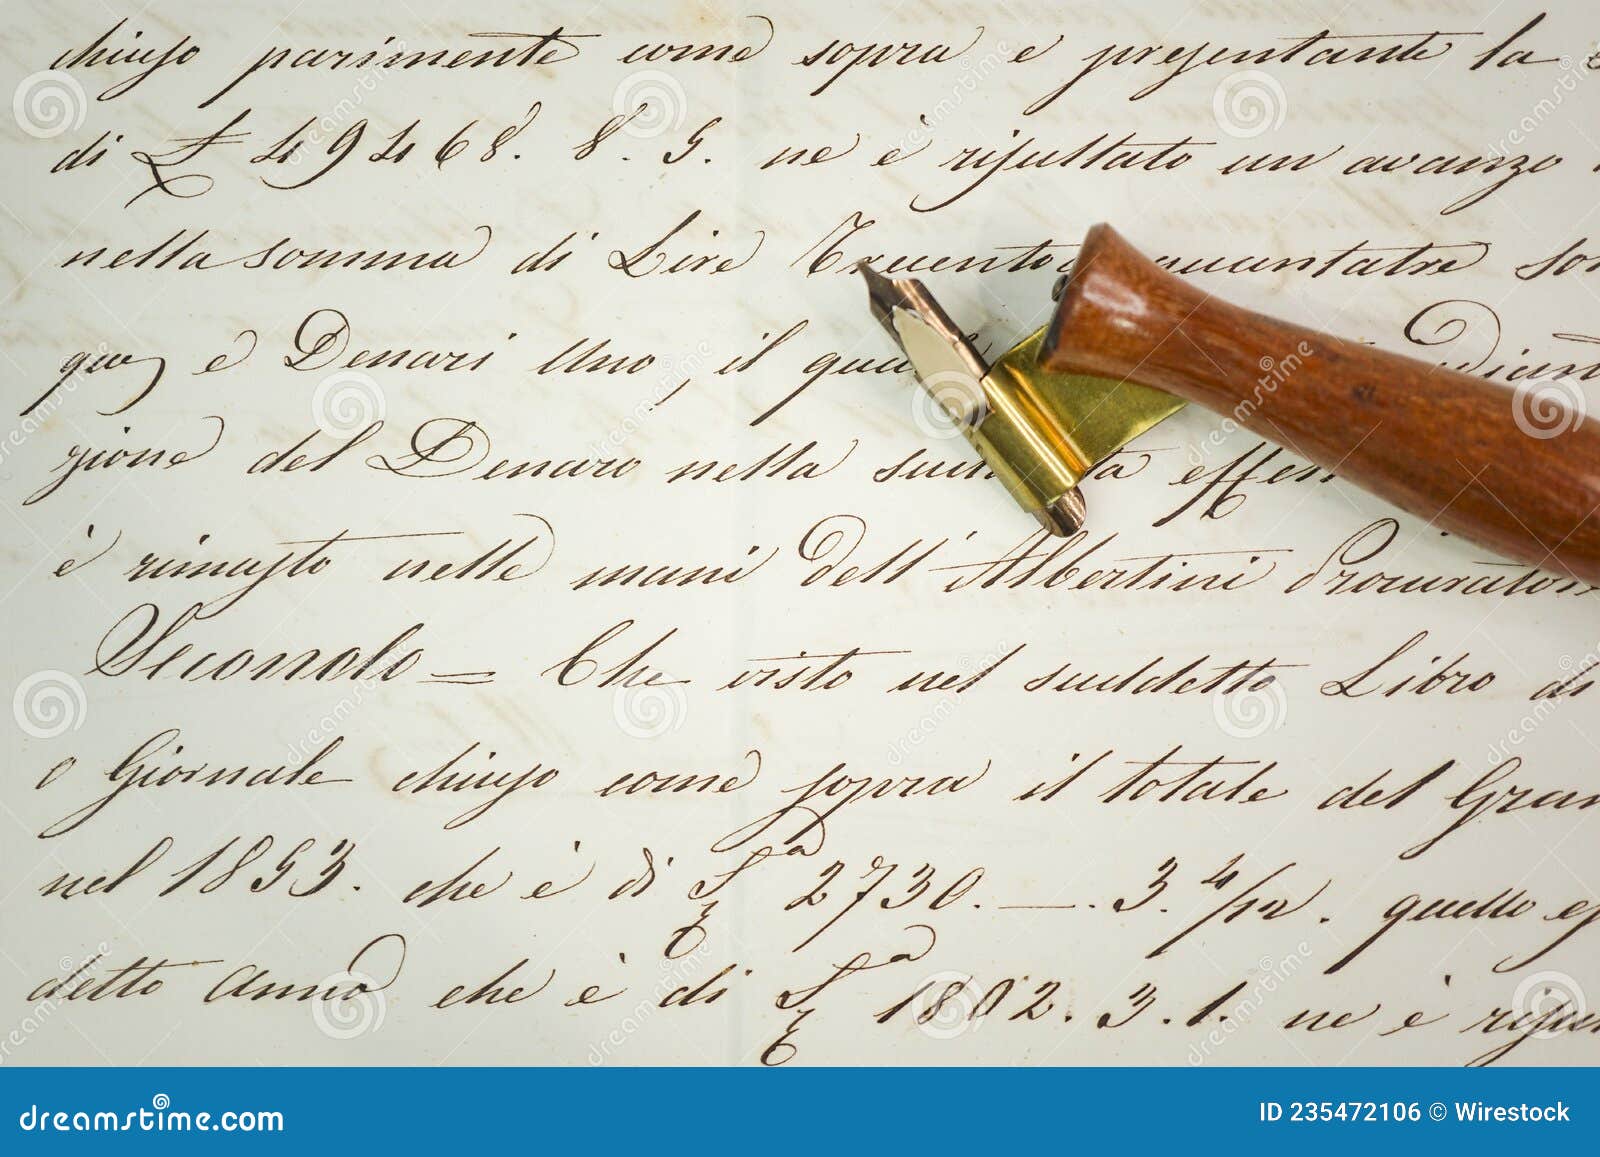 chiuso parimente come sopra e presentante la
di £ 49468. 8. 5. ne è risultato un avanzo
nella somma di Lire Trecento quantatre
que e Denari Uno, il qua
zione del Denaro nella effe
è rimasto nelle mani dell' Albertini Procurator
Secondo = Che visto nel suddetto Libro di
o Giornale chiuso come sopra il totale del Gran
nel 1853. che è di £ª 2730. — . 3. 4/12. quello
detto anno che è di £ª 1802. 3. 1. ne è
dreamstime.com
ID 235472106 © Wirestock